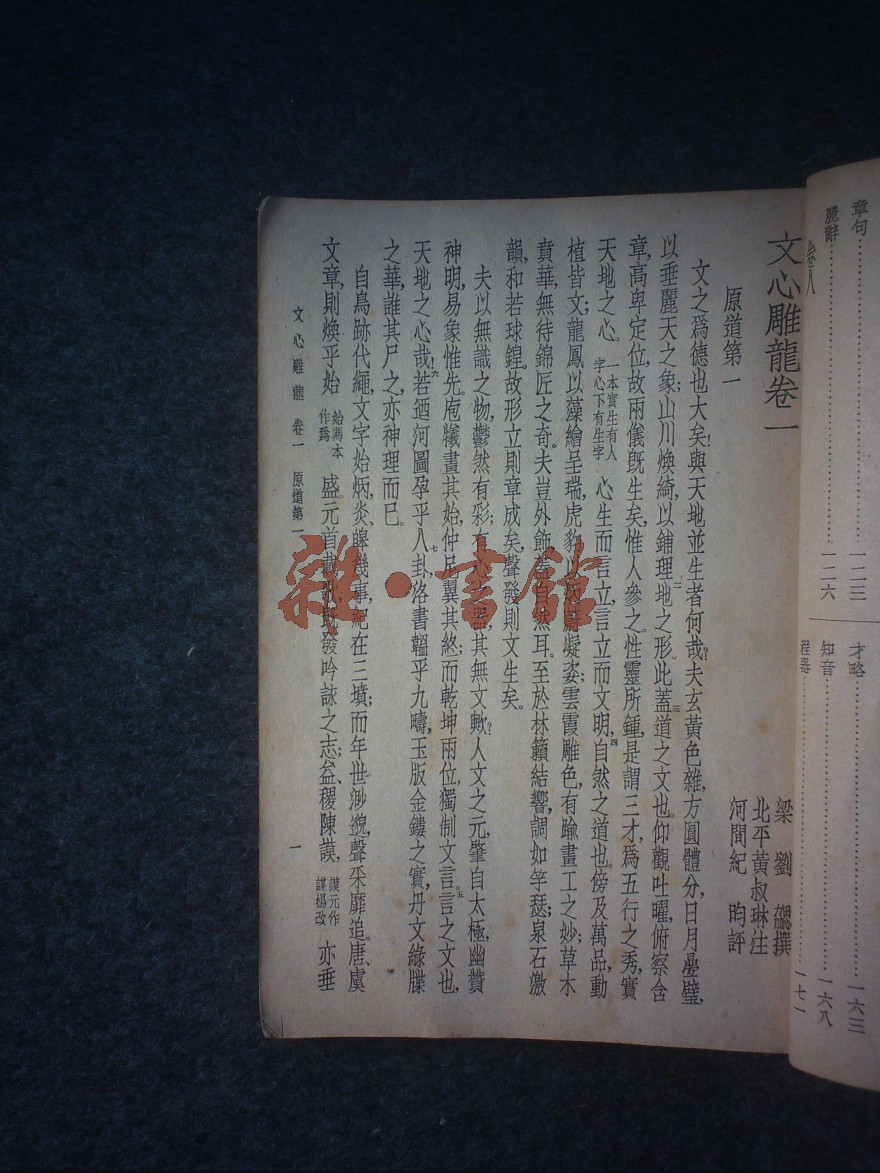 章句 一二三
麗辭 一二六
卷八
才略 一六三
知音 一六八
程器 一七一
文心雕龍卷一
梁 劉 勰撰
北平黃叔琳注
河間紀 昀評
原道第一
文之爲德也大矣!與天地並生者何哉?夫玄黃色雜,方圓體分,日月疊璧,
以垂麗天之象;山川煥綺,以鋪理地之形。二此蓋道之文也。三仰觀吐曜,俯察含
章,高卑定位,故兩儀旣生矣,惟人參之。性靈所鍾,是謂三才,爲五行之秀,實
天地之心。一本實生有人字心下有生字心生而言立,言立而文明,四自然之道也。傍及萬品,動
植皆文:龍鳳以藻繪呈瑞,虎豹以炳蔚凝姿;雲霞雕色,有踰畫工之妙;草木
賁華,無待錦匠之奇。夫豈外飾,蓋自然耳。至於林籟結響,調如竽瑟;泉石激
韻,和若球鍠。故形立則章成矣,聲發則文生矣。
夫以無識之物,鬱然有彩,有心之器,其無文歟?人文之元,肇自太極,幽贊
神明,易象惟先。庖犧畫其始,仲尼翼其終;而乾坤兩位,獨制文言。五言之文也,
天地之心哉!六若迺河圖孕乎八卦,七洛書韞乎九疇,玉版金鏤之實,丹文綠牒
之華,誰其尸之,亦神理而已。
自鳥跡代繩,文字始炳,炎、皞幾事,紀在三墳;而年世渺邈,聲采靡追。唐、虞
文章,則煥乎始始馮本作爲盛。元首載歌,旣發吟詠之志;益、稷陳謨,謨元作謀楊改亦垂
文心雕龍 卷一 原道第一 一
雜·書館